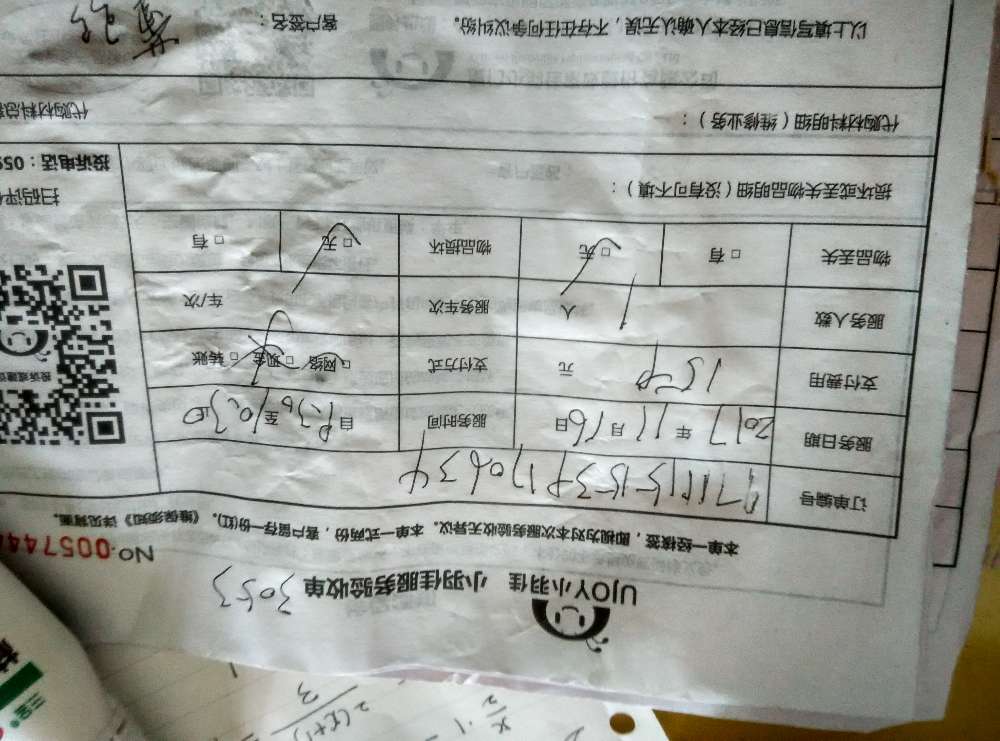 UJOY小羽佳 小羽佳服务验收单 3053
NO.005744
本单一经核签，即视为对本次服务验收无异议。本单一式两份，客户留存一份(红)。《维保须知》详见背面。
订单编号
服务日期 2017 年 11 月 16 日 服务时间 自 至 10:30 止
支付费用 150 元 支付方式 □网络 □现金 □转账
服务人数 1 人 服务车次 车/次
物品丢失 □有 □无 物品损坏 □无 □有
损坏或丢失物品明细（没有可不填）：
扫码评价
投诉电话：059
代购材料明细（维修业务）：
代购材料总
以上填写信息已经本人确认无误，不存在任何争议纠纷。 客户签名：